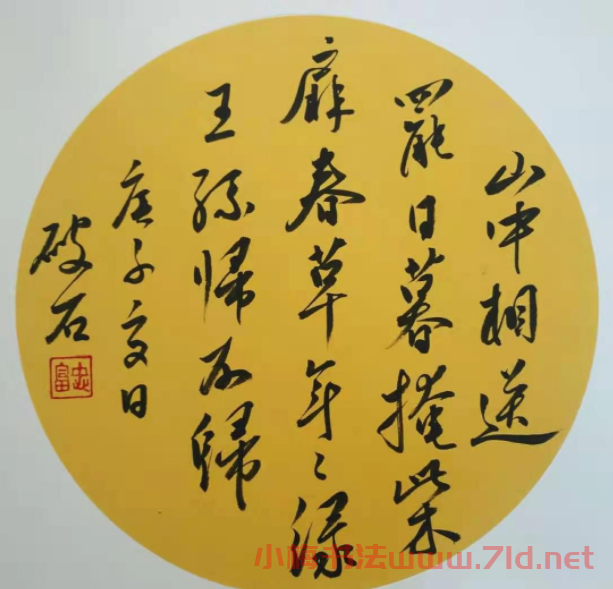 山中相送
罷日暮掩柴
扉春草年〻綠
王孫歸不歸
庚子夏日
破石
忠富
小梅书法www.7ld.net